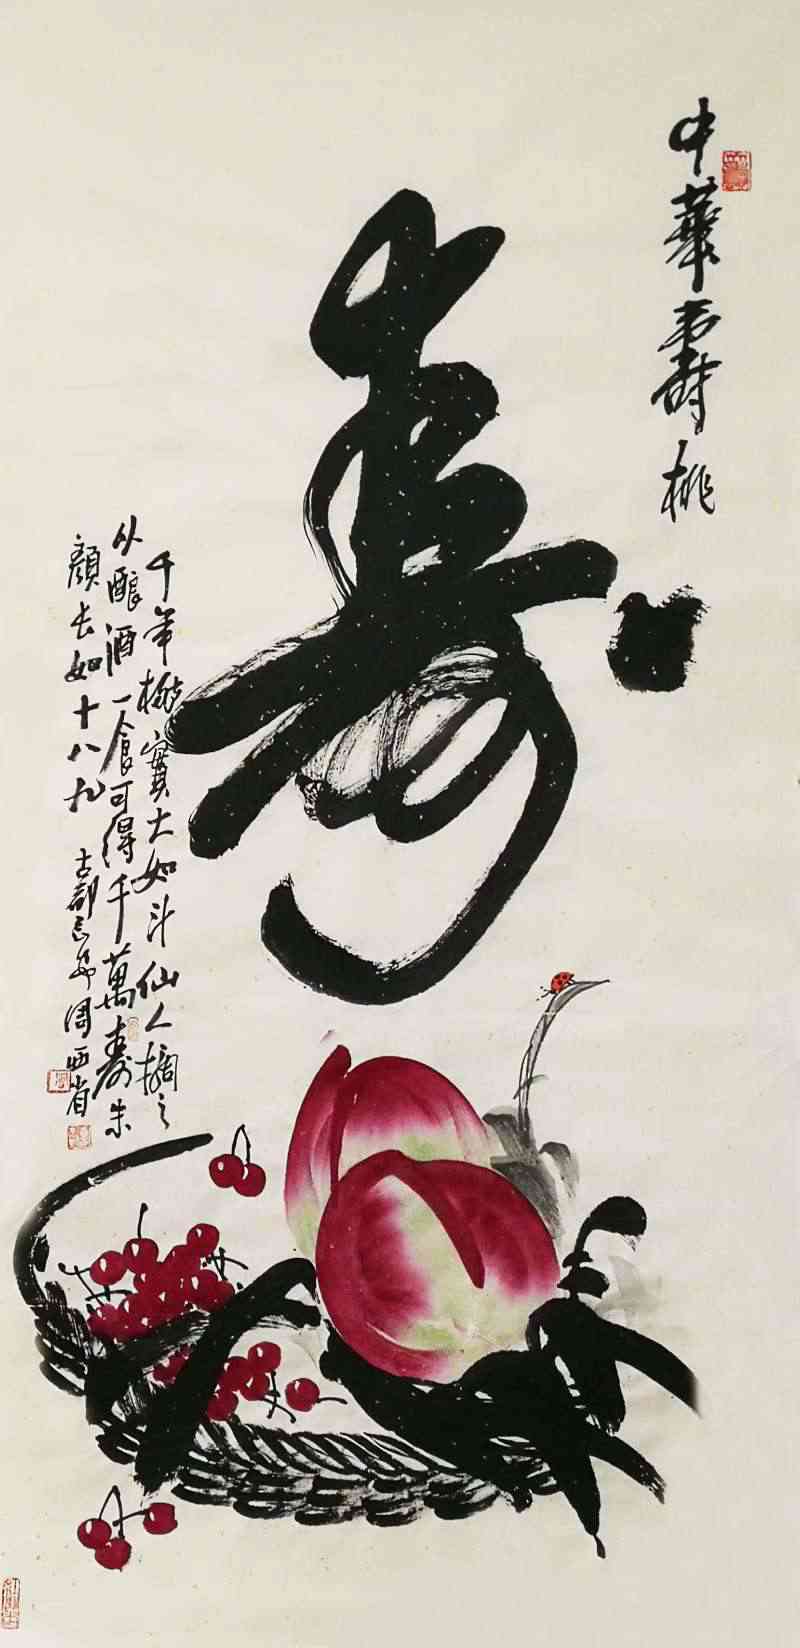 中華壽桃
寿
千年桃實大如斗仙人摘之
以釀酒一食可得千萬壽朱
顏長如十八九
古都長安周西省